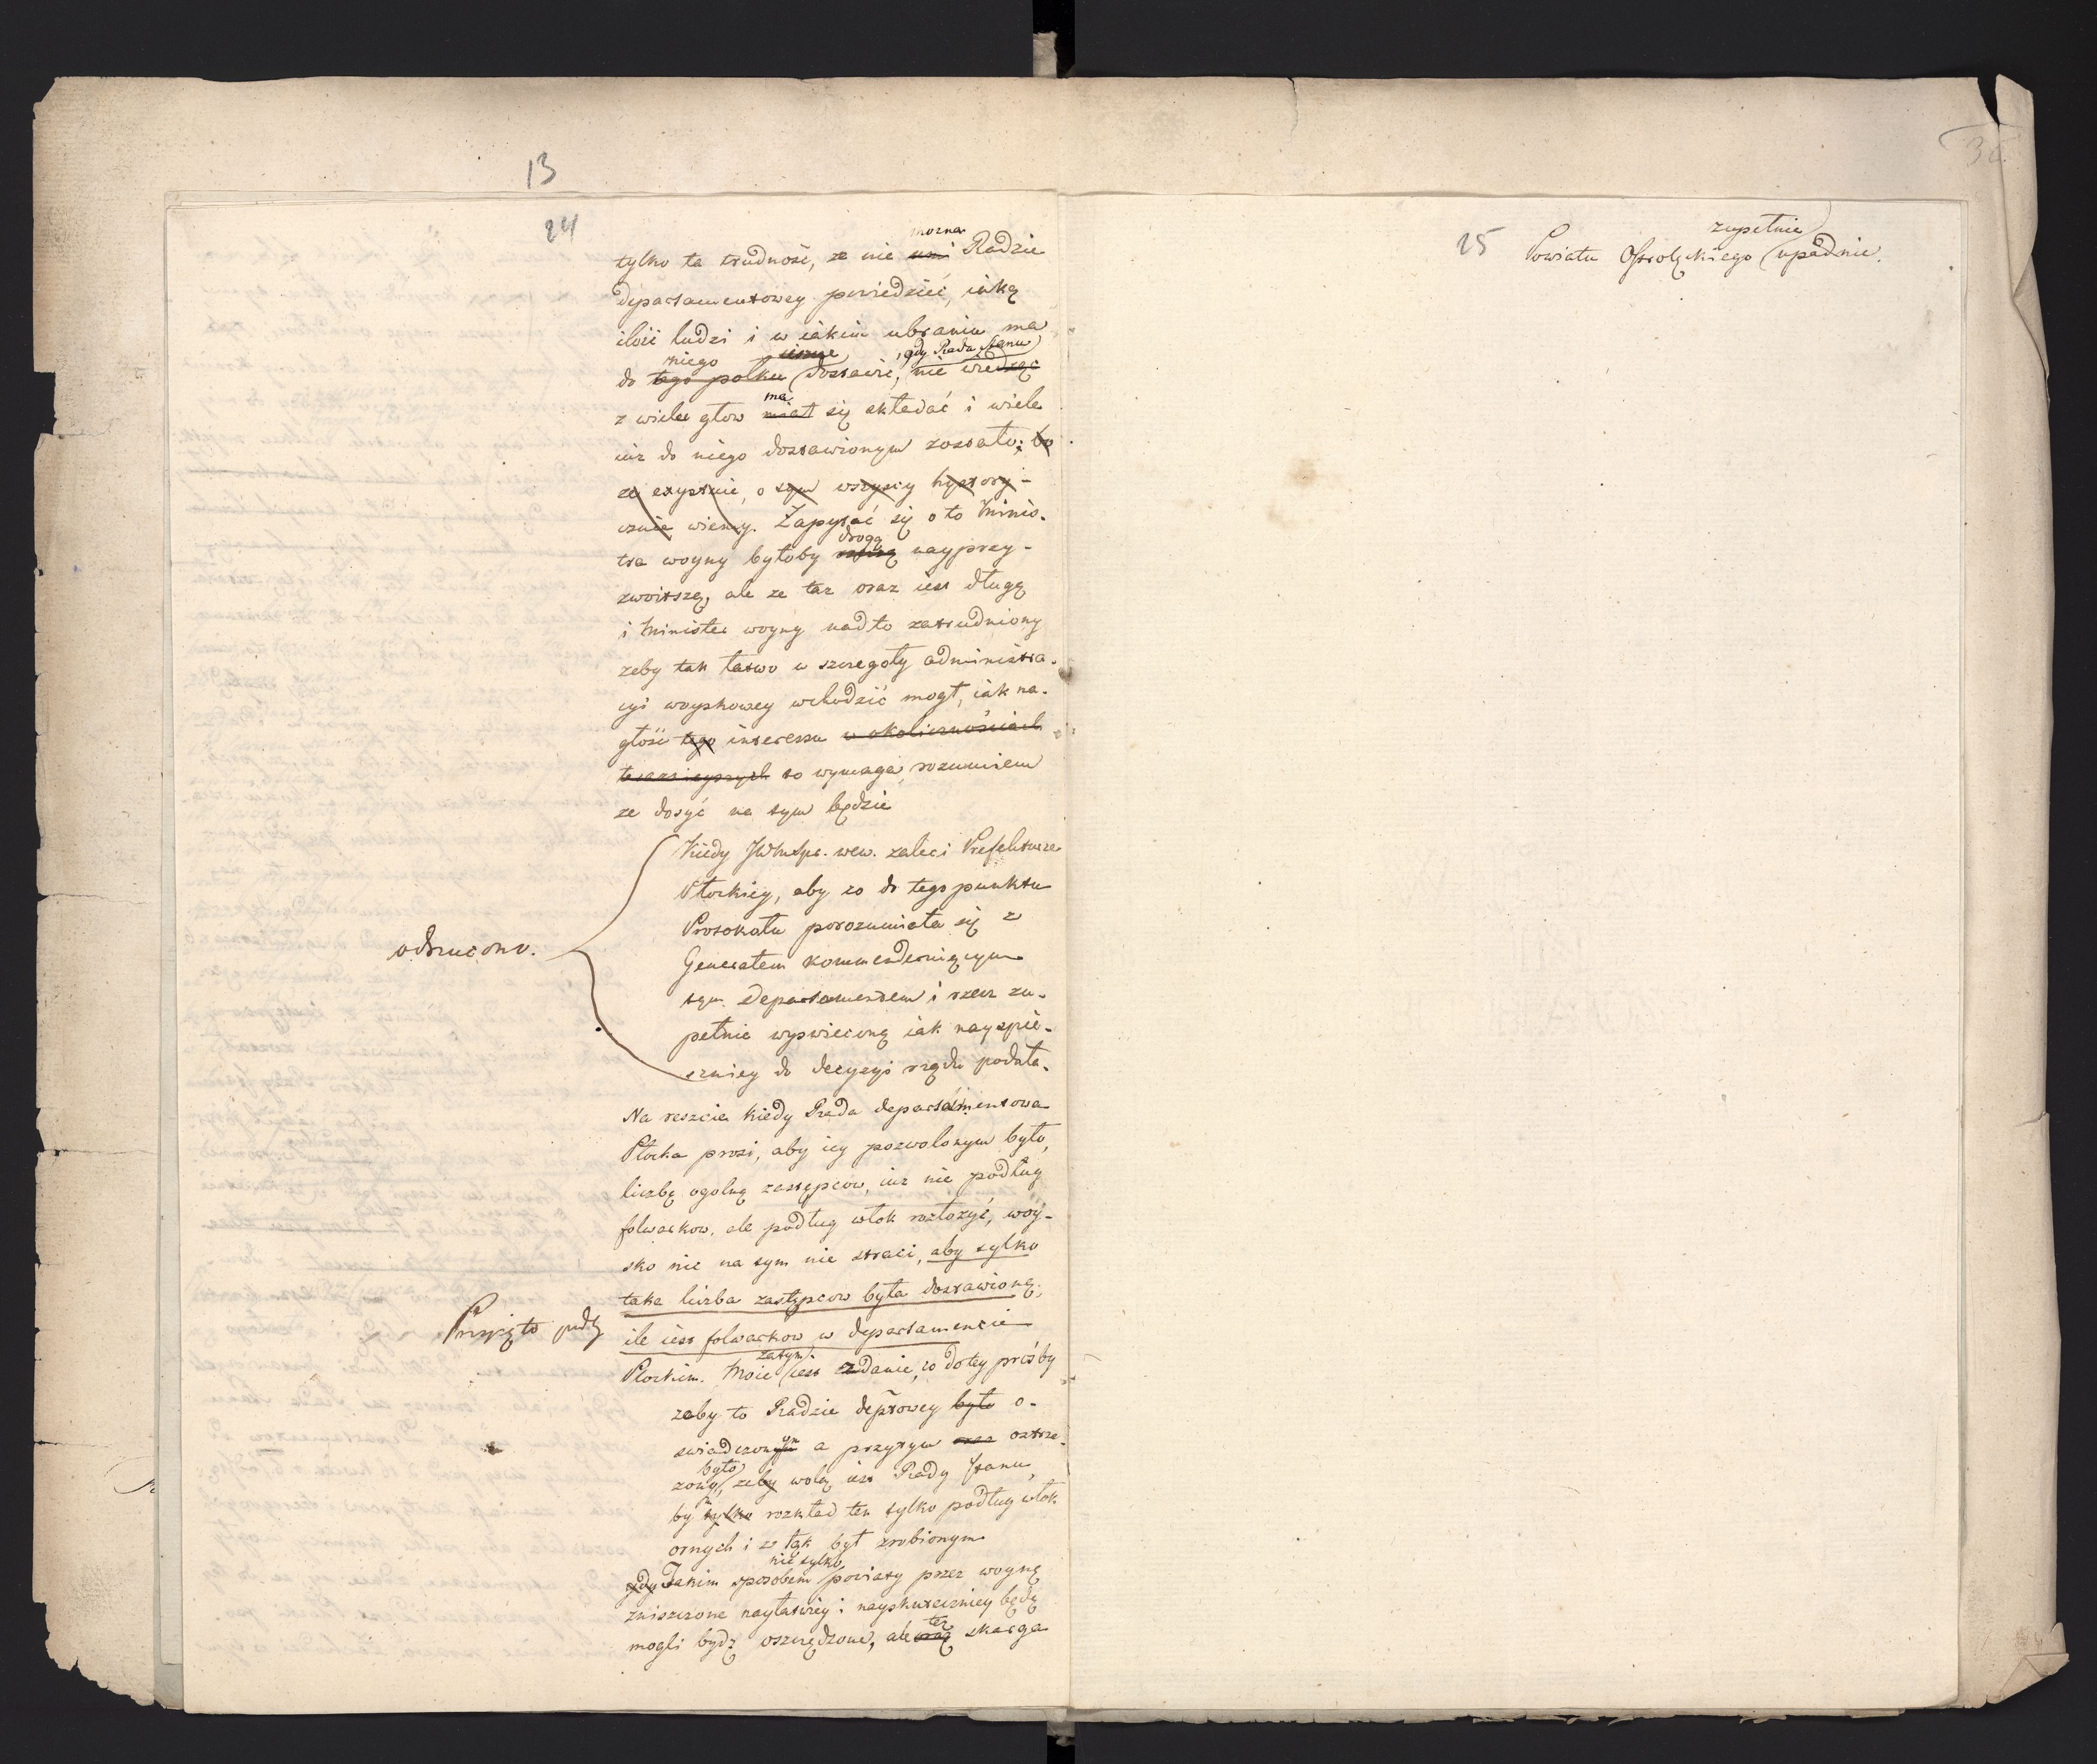 13
24
tylko ta trudność, ze nie można Radzie
departamentowey powiedzieć, iaką
ilość ludzi i w iakim ubraniu ma
do niego tego pułku dostawić, gdy Rada Stanu nie wiedząc
z wiele głow ma miał się składać i wiele
iuż do niego dostawionym zostało; bo
ze exystuie, o tym wszyscy hystory-
cznie wiemy. Zapytać się o to Minis-
tra woyny byłoby drogą nayprzy-
zwoitszą, ale ze taż oraz iest długą
i Minister woyny nadto zatrudniony
zeby tak łatwo w szczegoły administra-
cyi woyskowey wchodzić mogł, iak na-
głość tego interessu w okolicznościach
teraznieyszych to wymaga, rozumiem
ze dosyć na tym będzie
Kiedy JW Mstr. wew. zaleci Prefekturze
Płockiey, aby co do tego punktu
Protokołu porozumiała się z
Generałem kommenderuiącym
tym Departamentem i rzecz zu-
pełnie wyswieconą iak nayspie-
szniey do decyzyi rządu podała.
odrzucono.
Na reszcie kiedy Rada departamentowa
Płocka prosi, aby iey pozwolonym było,
liczbę ogolną zastępcow, iuż nie podług
folwarkow, ale podług włok rozłożyć, woy-
sko nic na tym nie straci, aby tylko
taka liczba zastępcow była dostawioną,
ile iest folwarkow w departamencie
Przyięto
Płockim. Moie zatym iest zdanie, co do tey prośby
zeby to Radzie deptowey było o-
swiadczonym a przytym oraz ostrze-
zony było, zeby wolą iest Rady Stanu,
by tylko rozkład ten tylko podług włok
ornych i z tąk był zrobionym
gdy Takim sposobem nie tylko powiaty przez woynę
zniszczone nayłatwiey i nayskuteczniey będą
mogli bydź oszczędzone, ale też oraz skarga
25
Powiatu Ostrołęckiego zupełnie upadnie.